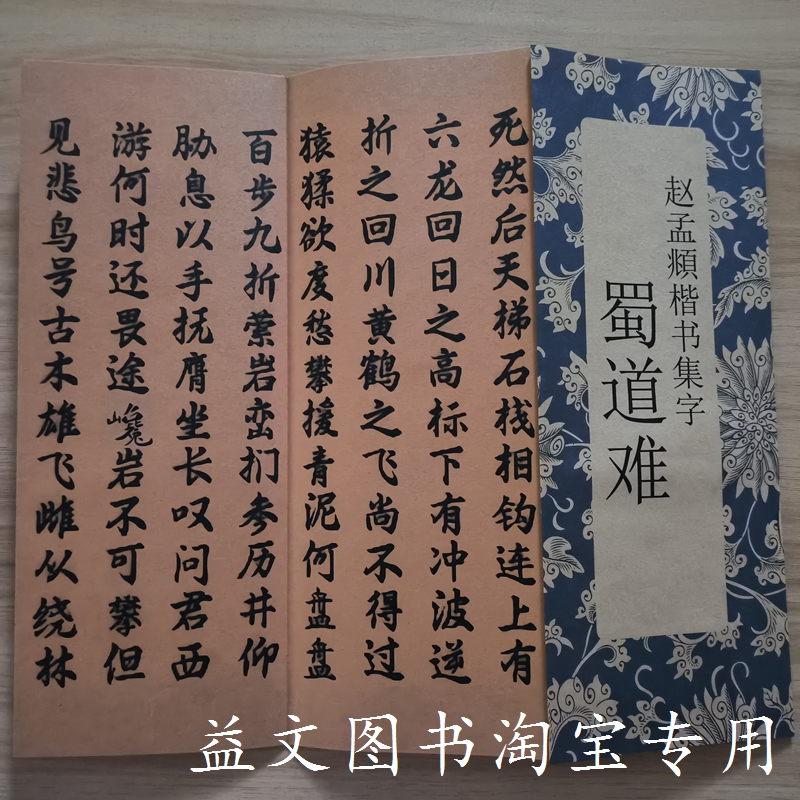 赵孟頫楷书集字
蜀道难
死然后天梯石栈相钩连上有
六龙回日之高标下有冲波逆
折之回川黄鹤之飞尚不得过
猿猱欲度愁攀援青泥何盘盘
百步九折萦岩峦扪参历井仰
胁息以手抚膺坐长叹问君西
游何时还畏途巉岩不可攀但
见悲鸟号古木雄飞雌从绕林
益文图书淘宝专用